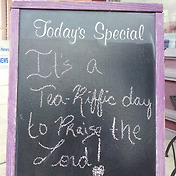 Today's Special
It's a
Tea-Riffic day
to Praise the
Lord!
NEWS